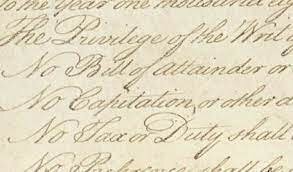 to the Year one thousand eig
The Privilege of the Writ o
No Bill of Attainder or
No Capitation, or other d
No Tax or Duty shall
No Preference shall be